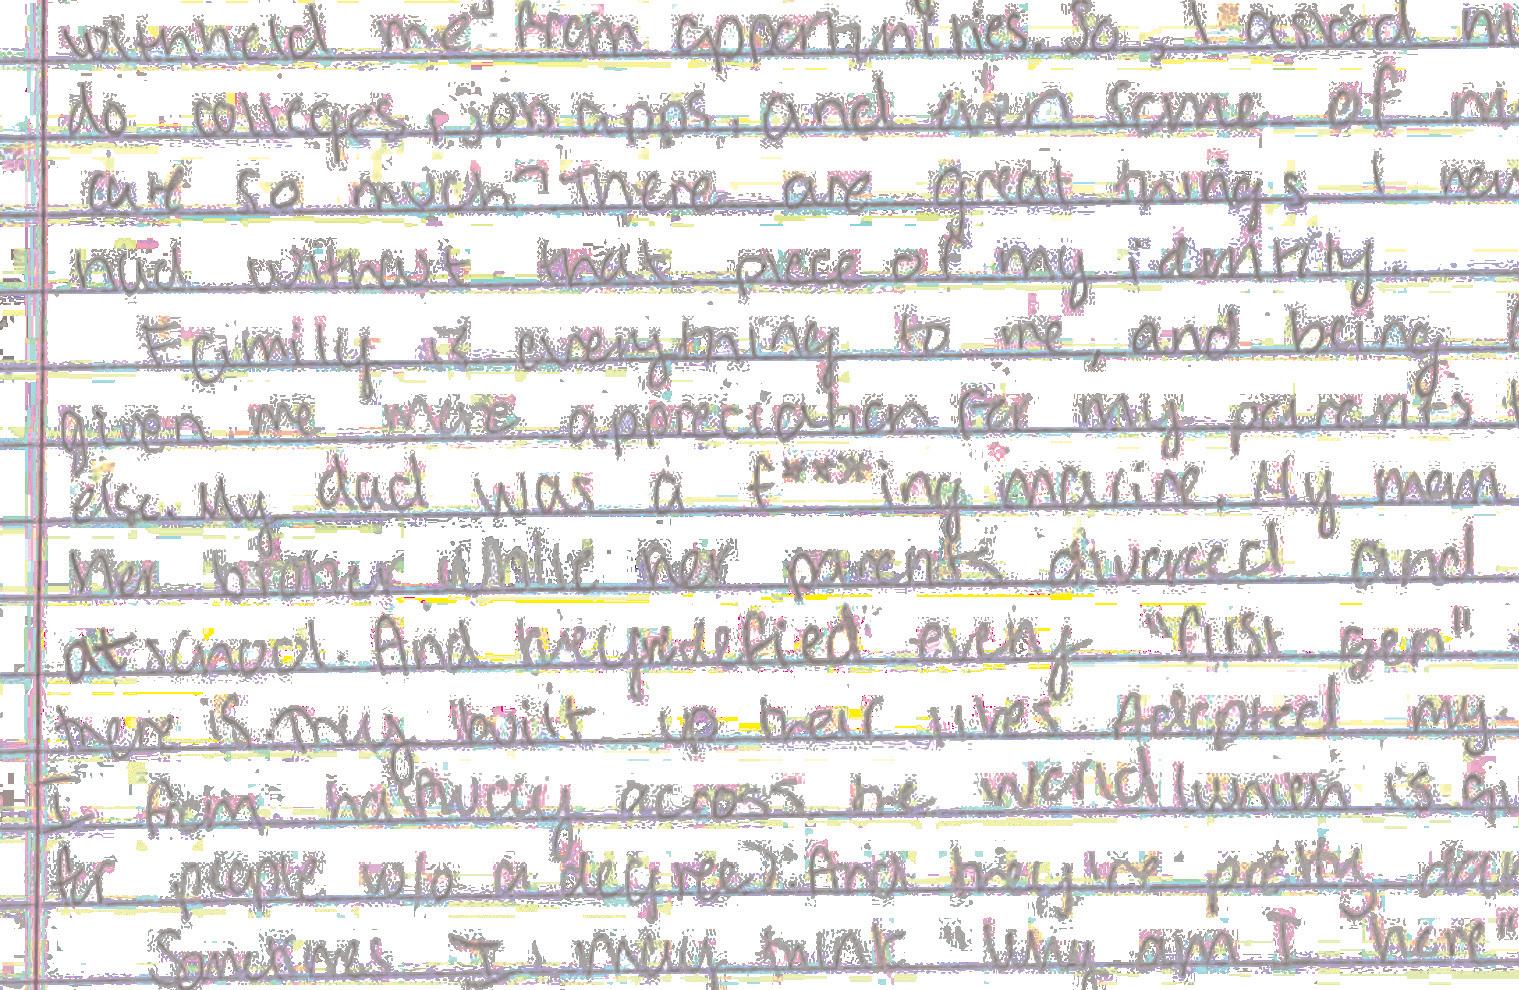 withheld me" from opportunities. So, I asked
do colleges, job apps, and even some of
care so much" There are great things I
had without that piece of my identity.
Family is everything to me, and being
given me more appreciation for my parents
else. My dad was a f****ing marine. My mom
her brother while her parents divorced and
at school. And they defied every "first gen"
there is. They built up their lives Adopted my
from halfway across the world (which is
for people w/o a degree) And they're pretty
Sometimes I may think "Why am I here"